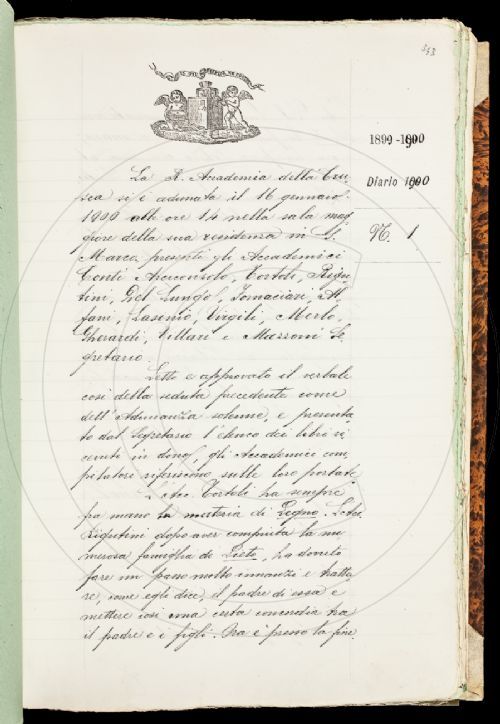 543
1899-1900
Diario 1900
N. 1
La R. Accademia della Cru-
sca si è adunata il 16 gennaio
1900 alle ore 14 nella sala mag-
giore della sua residenza in S.
Marco, presenti gli Accademici
Conti Arciconsolo, Tortoli, Rigu-
tini, Del Lungo, Tomaciari, Al-
fani, Lasinio, Virgili, Merlo,
Gherardi, Villari e Mazzoni Se-
gretario.
Letto e approvato il verbale
così della seduta precedente come
dell'Adunanza solenne, e presenta-
to dal Segretario l'elenco dei libri ri-
cevuti in dono, gli Accademici com-
pilatori riferiscono sulle loro portate.
L'Acc. Tortoli ha sempre
fra mano la materia di Legno. L'Acc.
Rigutini dopo aver compiuta la nu-
merosa famiglia di Lieto, ha dovuto
fare un passo molto innanzi e tratta-
re, come egli dice, il padre di essa e
mettere così una certa concordia tra
il padre e i figli. Ora è presso la fine